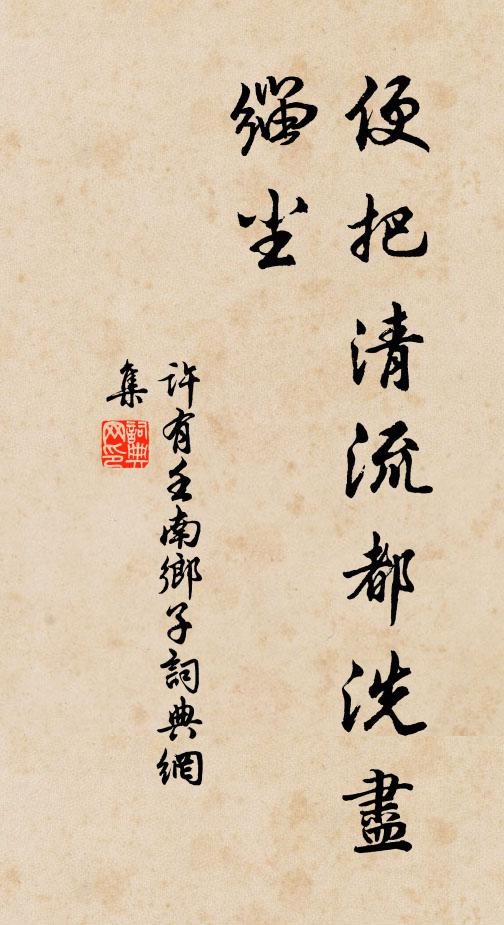 便把清流都洗盡
緇尘
許有壬南鄉子詞典網
集
詞典
网印